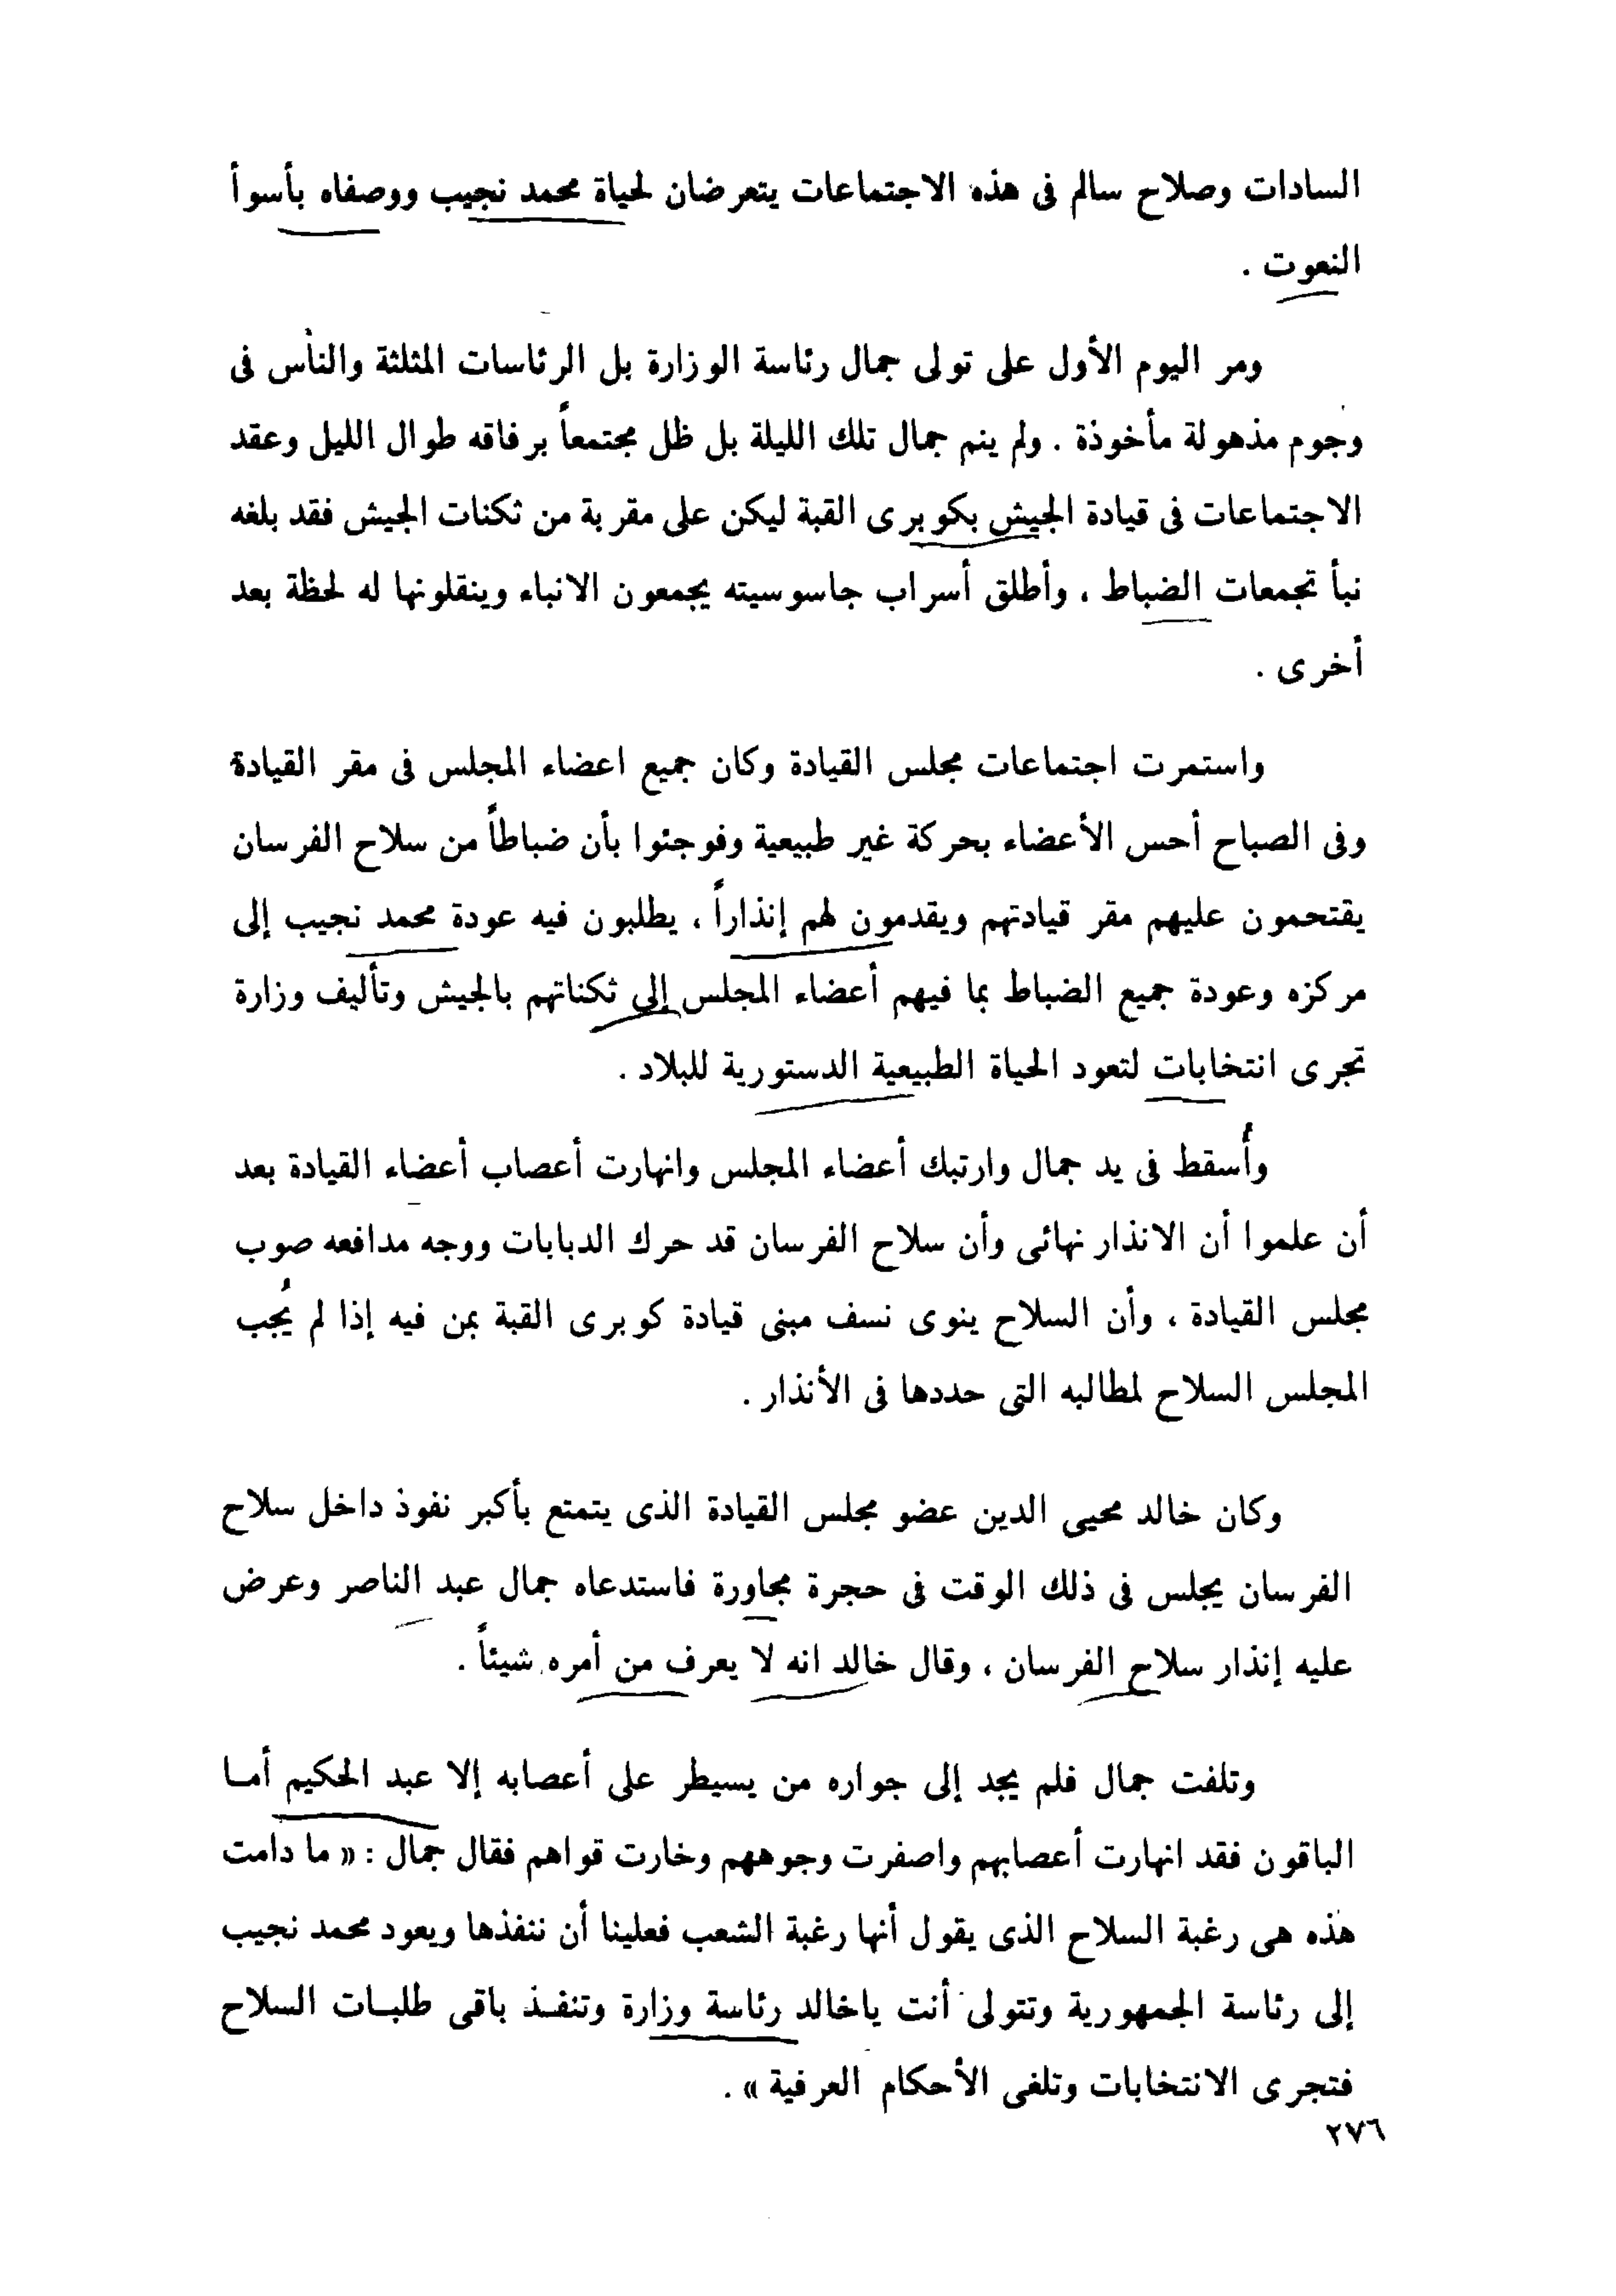 السادات وصلاح سالم فى هذه الاجتماعات يتعرضان لحياة محمد نجيب ووصفاه بأسوأ
النعوت .
ومر اليوم الأول على تولى جمال رئاسة الوزارة بل الرئاسات المثلثة والناس فى
وجوم مذهولة مأخوذة . ولم ينم جمال تلك الليلة بل ظل مجتمعاً برفاقه طوال الليل وعقد
الاجتماعات فى قيادة الجيش بكوبرى القبة ليكن على مقربة من ثكنات الجيش فقد بلغه
نبأ تجمعات الضباط ، وأطلق أسراب جاسوسيته يجمعون الانباء وينقلونها له لحظة بعد
أخرى .
واستمرت اجتماعات مجلس القيادة وكان جميع اعضاء المجلس فى مقر القيادة
وفى الصباح أحس الأعضاء بحركة غير طبيعية وفوجئوا بأن ضباطاً من سلاح الفرسان
يقتحمون عليهم مقر قيادتهم ويقدمون لهم إنذاراً ، يطلبون فيه عودة محمد نجيب إلى
مركزه وعودة جميع الضباط بما فيهم أعضاء المجلس إلى ثكناتهم بالجيش وتأليف وزارة
تجرى انتخابات لتعود الحياة الطبيعية الدستورية للبلاد .
وأُسقط فى يد جمال وارتبك أعضاء المجلس وانهارت أعصاب أعضاء القيادة بعد
أن علموا أن الانذار نهائى وأن سلاح الفرسان قد حرك الدبابات ووجه مدافعه صوب
مجلس القيادة ، وأن السلاح ينوى نسف مبنى قيادة كوبرى القبة بمن فيه إذا لم يُجب
المجلس السلاح لمطالبه التى حددها فى الأنذار .
وكان خالد محيى الدين عضو مجلس القيادة الذى يتمتع بأكبر نفوذ داخل سلاح
الفرسان يجلس فى ذلك الوقت فى حجرة مجاورة فاستدعاه جمال عبد الناصر وعرض
عليه إنذار سلاح الفرسان ، وقال خالد انه لا يعرف من أمره شيئاً .
وتلفت جمال فلم يجد إلى جواره من يسيطر على أعصابه إلا عبد الحكيم أما
الباقون فقد انهارت أعصابهم واصفرت وجوههم وخارت قواهم فقال جمال : « ما دامت
هذه هى رغبة السلاح الذى يقول أنها رغبة الشعب فعلينا أن ننفذها ويعود محمد نجيب
إلى رئاسة الجمهورية وتتولى أنت ياخالد رئاسة وزارة وتنفذ باقى طلبات السلاح
فتجرى الانتخابات وتلغى الأحكام العرفية » .
٢٧٦